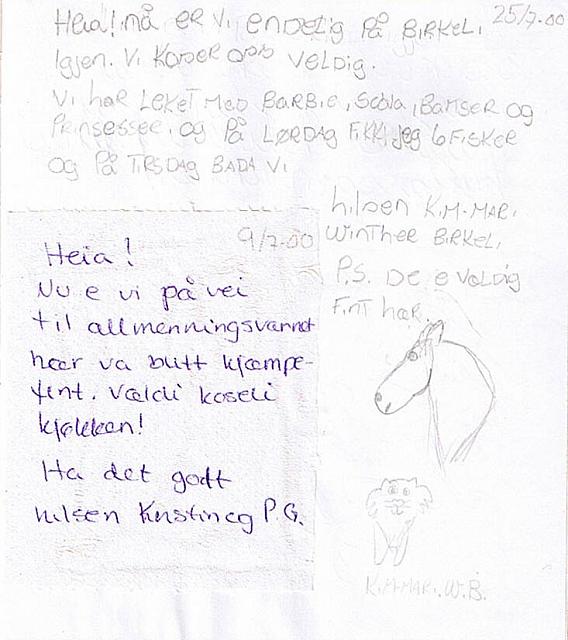 Heia! nå er vi endelig på Birkel. 25/7-00
Igjen. Vi koser oss veldig.
Vi har leket med Barbie, Scala, Bamser og
Prinsesser, og på Lørdag fikk jeg 6 fisker
og på tirsdag bada vi
hilsen K.M-Mari.
Winther Birkel.
P.S. De e veldig
fint her.
9/7-00
Heia!
Nu e vi på vei
til allmenningsvannet
hær va blitt kjæmpe-
fint. Vældi koseli
kjøkken!
Ha det godt
hilsen Kirstin og P.G.
K.M-Mari. W.B.